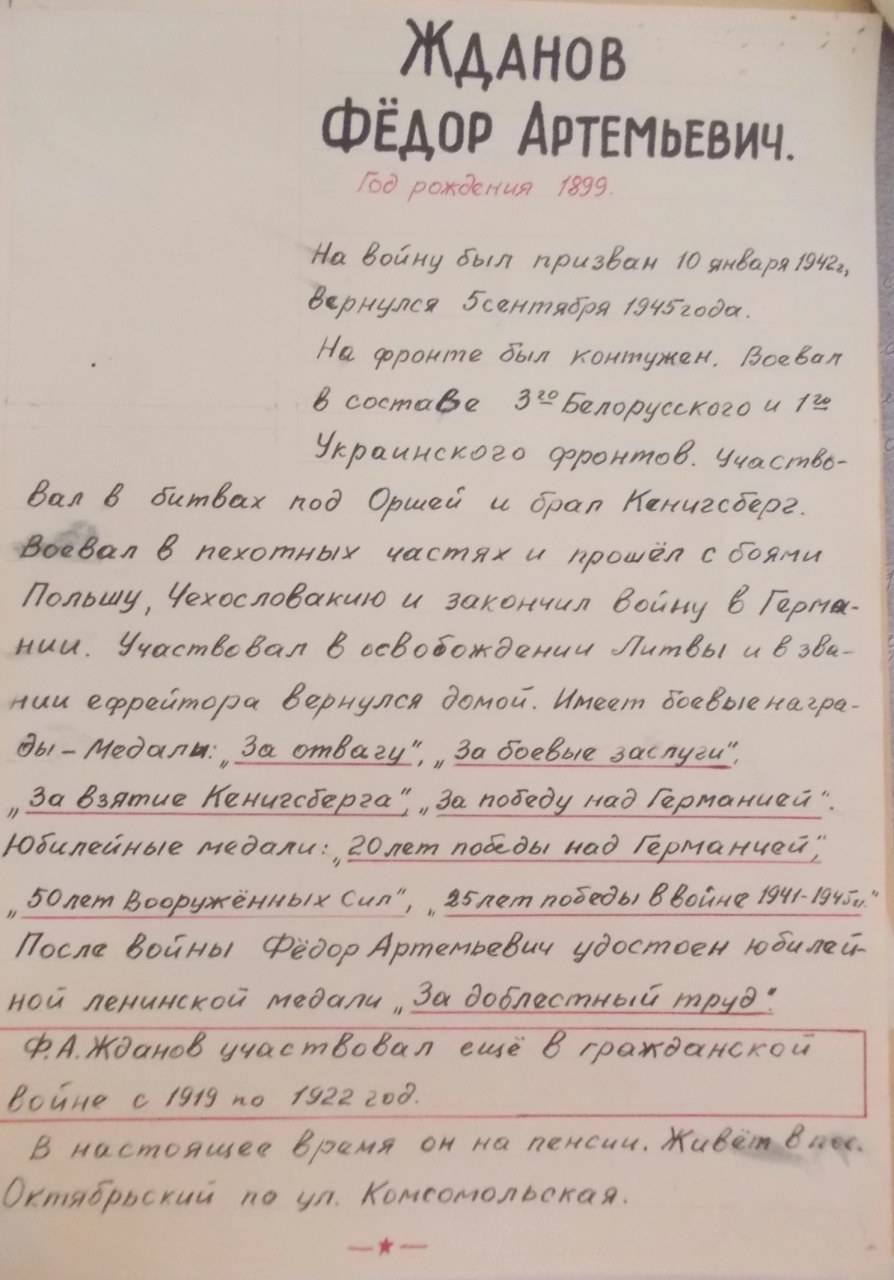 ЖДАНОВ
ФЁДОР АРТЕМЬЕВИЧ.
Год рождения 1899.
На войну был призван 10 января 1942г,
вернулся 5 сентября 1945 года.
На фронте был контужен. Воевал
в составе 3го Белорусского и 1го
Украинского фронтов. Участво-
вал в битвах под Оршей и брал Кенигсберг.
Воевал в пехотных частях и прошёл с боями
Польшу, Чехословакию и закончил войну в Герма-
нии. Участвовал в освобождении Литвы и в зва-
нии ефрейтора вернулся домой. Имеет боевые награ-
ды – медали: „За отвагу", „За боевые заслуги",
„За взятие Кенигсберга", „За победу над Германией".
Юбилейные медали: „20 лет победы над Германией",
„50 лет Вооружённых Сил", „25 лет победы в войне 1941-1945гг."
После войны Фёдор Артемьевич удостоен юбилей-
ной ленинской медали „За доблестный труд".
Ф.А. Жданов участвовал ещё в гражданской
войне с 1919 по 1922 год.
В настоящее время он на пенсии. Живёт в пос.
Октябрьский по ул. Комсомольская.